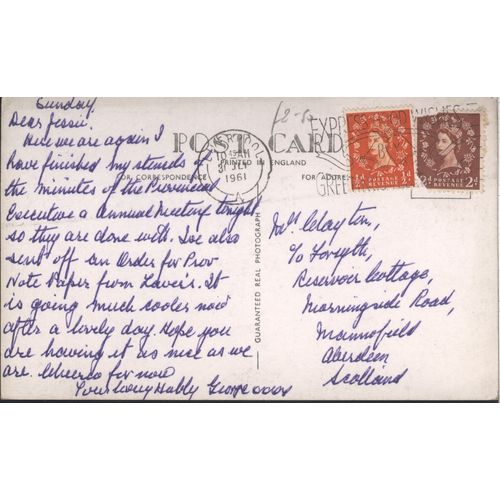 Sunday
Dear Jessie.
Here we are again I
have finished my stencils of
the Minutes of the Provincial
Executive & Annual Meeting tonight
so they are done with. I've also
sent off an Order for Prov
Note Paper from It
is going much cooler now
after a lovely day. Hope you
are having it as nice as we
are. Cheerio for now
Your loving Hubby George xxxx
£2-50
POST CARD
PRINTED IN ENGLAND
FOR CORRESPONDENCE
FOR ADDRESS
LIVERPOOL
10 AM
1961
EXPRESS GOOD WISHES
BY
GREE
POSTAGE
REVENUE
½d ½d
POSTAGE
REVENUE
2d 2d
GUARANTEED REAL PHOTOGRAPH
Mrs Clayton,
c/o Forsyth,
Reservoir Cottage,
Morningside Road,
Mannofield
Aberdeen
Scotland